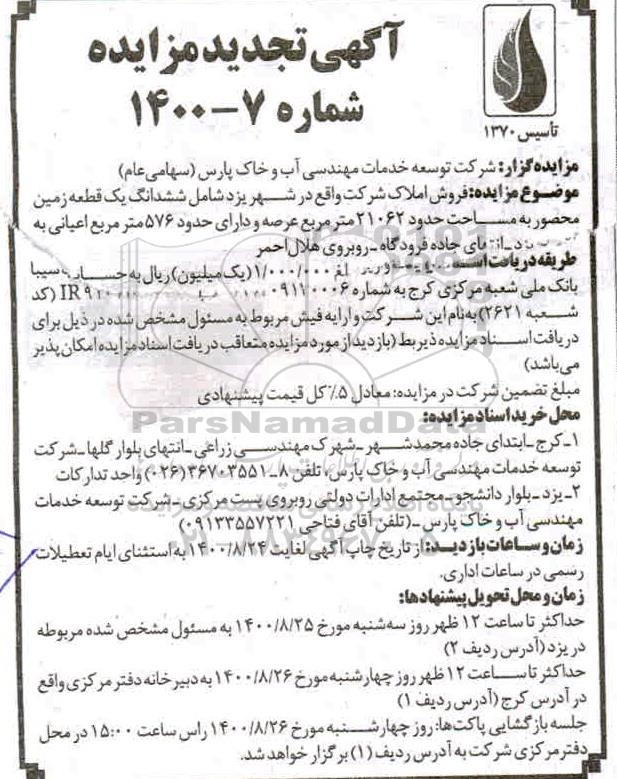 آگهی تجدید مزایده
شماره ۷-۱۴۰۰
تأسیس ۱۳۷۰
مزایده‌گزار: شرکت توسعه خدمات مهندسی آب و خاک پارس (سهامی عام)
موضوع مزایده: فروش املاک شرکت واقع در شهر یزد شامل ششدانگ یک قطعه زمین
محصور به مساحت حدود ۲۱۰۶۲ متر مربع عرصه و دارای حدود ۵۷۶ متر مربع اعیانی به
جاده فرودگاه - روبروی هلال احمر
طریقه دریافت ۱/۰۰۰/۰۰۰ (یک میلیون) ریال به حساب سیبا
بانک ملی شعبه مرکزی کرج به شماره (کد
شعبه ۲۶۲۱) به نام این شرکت و ارایه فیش مربوط به مسئول مشخص شده در ذیل برای
دریافت اسناد مزایده ذیربط (بازدید از مورد مزایده متعاقب دریافت اسناد مزایده امکان پذیر
می‌باشد)
مبلغ تضمین شرکت در مزایده: معادل ۵٪ کل قیمت پیشنهادی
محل خرید اسناد مزایده:
ParsNamadData
۱- کرج - ابتدای جاده محمدشهر - شهرک مهندسی زراعی - انتهای بلوار گلها - شرکت
توسعه خدمات مهندسی آب و خاک پارس، تلفن ۸-۳۶۷۰۳۵۵۱ (۰۲۶) واحد تدارکات
۲- یزد - بلوار دانشجو - مجتمع ادارات دولتی روبروی پست مرکزی - شرکت توسعه خدمات
مهندسی آب و خاک پارس - (تلفن آقای فتاحی ۰۹۱۳۳۵۵۷۲۲۱)
زمان و ساعات بازدید: از تاریخ چاپ آگهی لغایت ۱۴۰۰/۸/۲۴ به استثنای ایام تعطیلات
رسمی در ساعات اداری.
زمان و محل تحویل پیشنهادها:
حداکثر تا ساعت ۱۲ ظهر روز سه شنبه مورخ ۱۴۰۰/۸/۲۵ به مسئول مشخص شده مربوطه
در یزد (آدرس ردیف ۲)
حداکثر تا ساعت ۱۲ ظهر روز چهارشنبه مورخ ۱۴۰۰/۸/۲۶ به دبیرخانه دفتر مرکزی واقع
در آدرس کرج (آدرس ردیف ۱)
جلسه بازگشایی پاکت‌ها: روز چهارشنبه مورخ ۱۴۰۰/۸/۲۶ راس ساعت ۱۵:۰۰ در محل
دفتر مرکزی شرکت به آدرس ردیف (۱) برگزار خواهد شد.